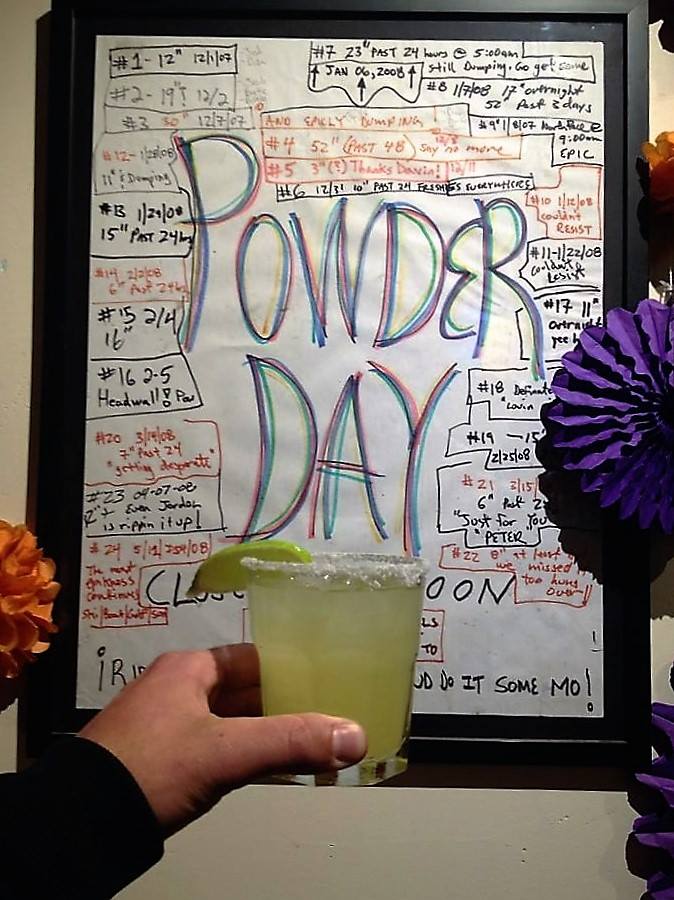 #1 - 12" 12/1/07
#2 - 19"! 12/2
#3 30" 12/7/07
#7 23" PAST 24 hours @ 5:00am
JAN 06, 2008
Still Dumping. Go get some
#8 1/7/08 17" overnight
52" Past 3 days
AND EPICLY DUMPING
#4 52" (PAST 48) say no more
#5 3"(?) Thanks Dawin! 12/11
#6 12/31 10" PAST 24 FRESHIES EVERYWHERE
9:00am
EPIC
#10 1/12/08
couldn't
RESIST
#11-1/22/08
couldn't
Resist
#12- 1/28/08
11" & Dumping
#13 1/29/08
15" PAST 24hrs
#14 2/2/08
6" Past 24hrs
#15 2/4
16"
#16 2-5
Headwall! Pow
#17 11"
overnight
POWDER
DAY
#18
#19 - 15"
2/25/08
#20 3/19/08
7" Past 24
"getting desperate"
#21 3/15/
6" Past 2
"Just for You
"PETER"
#22 8" at least
we missed
too hung
over
#23 04-07-08
Even Jordan
is rippin it up!
#24 5/12/2008
The most
continues
CLOS OON
LS
TO
¡RI UD DO IT SOME MO!